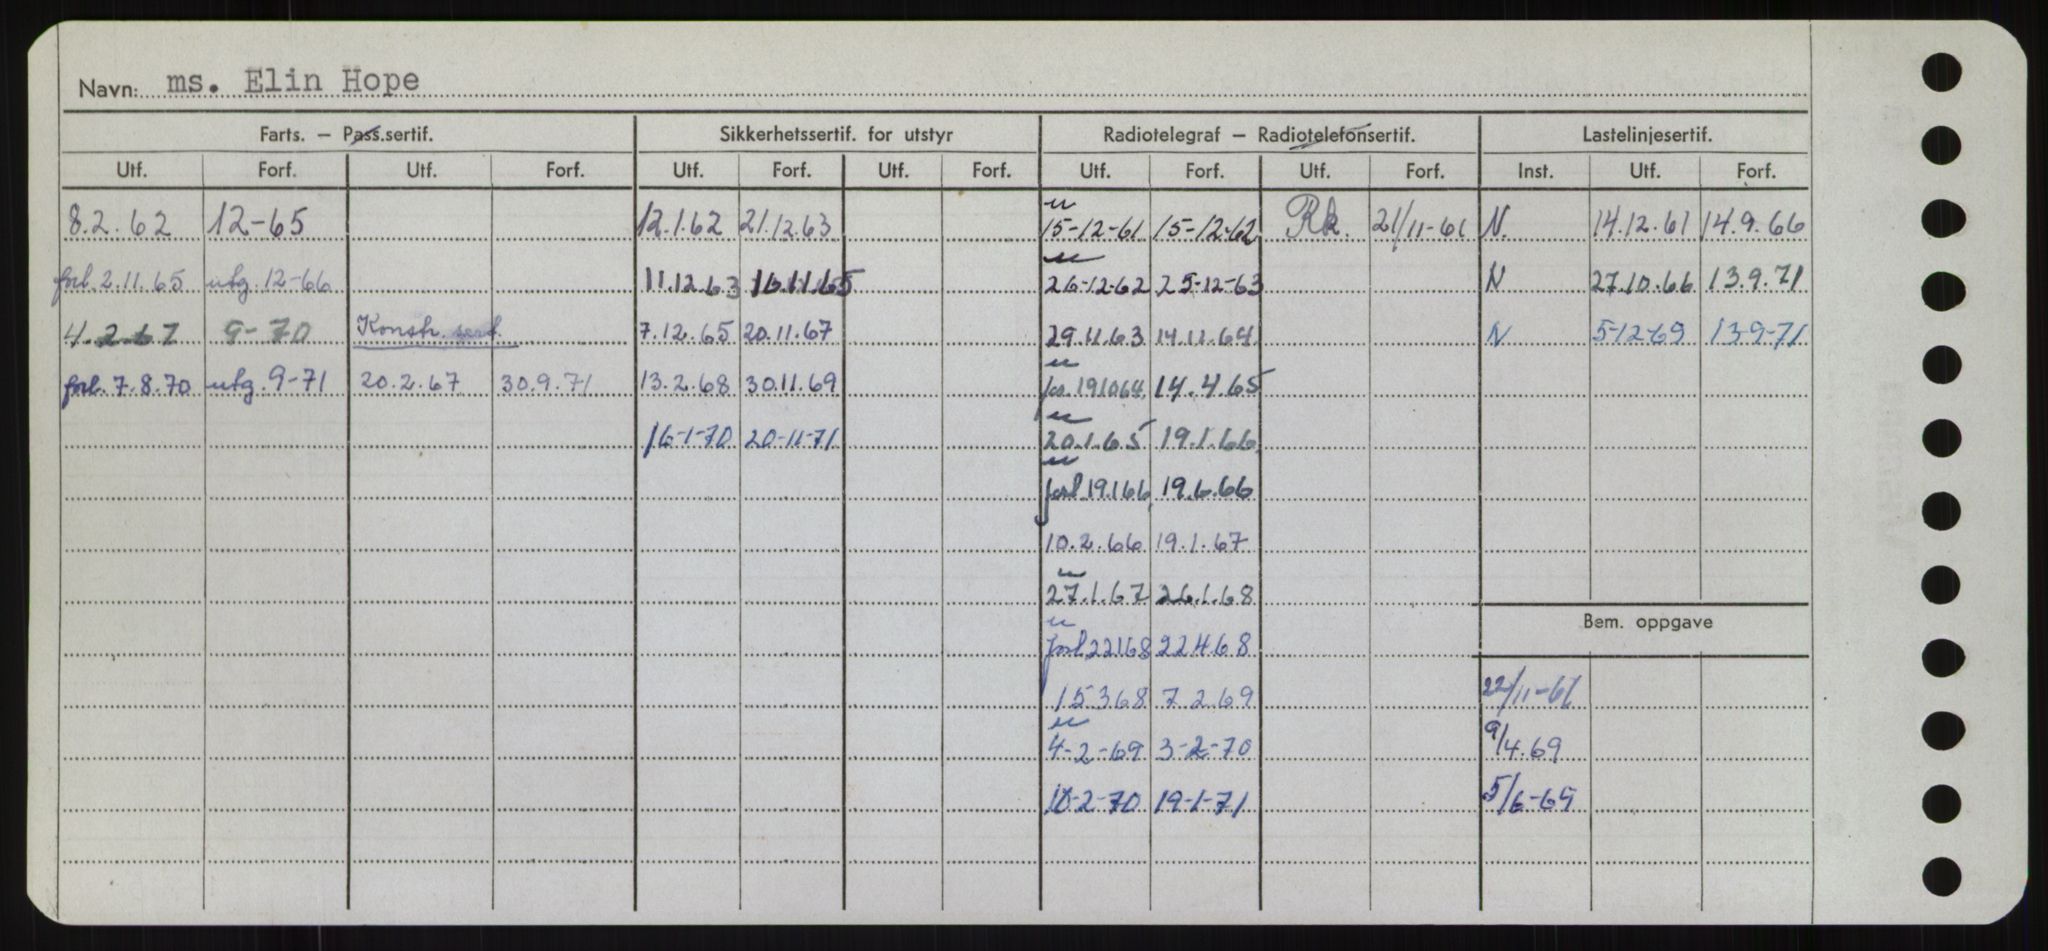 Navn: ms. Elin Hope
Farts. – Pass.sertif. Sikkerhetssertif. for utstyr Radiotelegraf – Radiotelefonsertif. Lastelinjesertif.
Utf. Forf. Utf. Forf. Utf. Forf. Utf. Forf. Utf. Forf. Utf. Forf. Inst. Utf. Forf.
8.2.62 12-65 12.1.62 21.12.63 15-12-61 15-12-62 Rk. 21/11-61 N. 14.12.61 14.9.66
forl. 2.11.65 utg. 12-66 11.12.63 16.11.65 26-12-62 25-12-63 N 27.10.66 13.9.71
4.2.67 9-70 Konstr. sert. 7.12.65 20.11.67 29.11.63 14.11.64 N 5-12-69 13-9-71
forl. 7.8.70 utg. 9-71 20.2.67 30.9.71 13.2.68 30.11.69 for. 191064 14.4.65
16-1-70 20-11-71 20.1.65 19.1.66
forl 19.166 19.6.66
10.2.66 19.1.67
27.1.67 26.1.68
Bem. oppgave
forl 22168 22468
15368 7.2.69 22/11-61
4-2-69 3-2-70 9/4.69
10-2-70 19-1-71 5/6-69